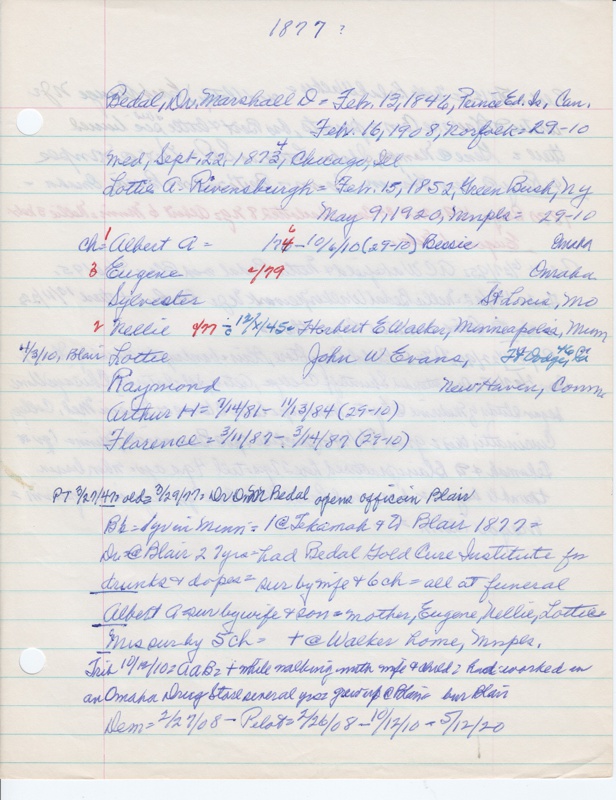 1877?
Bedal, Dr. Marshall D = Feb. 13, 1846, Prince Ed. Is, Can.
Feb. 16, 1908, Norfolk = 29-10
Med, Sept. 22, 1873, Chicago, Ill 4
Lottie A. Rivensburgh = Feb. 15, 1852, Green Bush, Ny
May 9, 1920, Mnpls = 29-10
ch = 1 Albert A = 1874 6 - 10/6/10 (29-10) Bessie Omaha
3 Eugene 2/79 Omaha
Sylvester St Louis, Mo
2 Nellie 9/77 12/2/45 = Herbert E Walker, Minneapolis, Minn
4/3/10, Blair Lottie John W Evans, Ft Dodge, Ia
Raymond New Haven, Conn
Arthur H = 7/14/81 - 11/13/84 (29-10)
Florence = 3/11/87 - 3/14/87 (29-10)
PT 3/27/47 = old = 3/29/77 = Dr Bedal opens office in Blair
B6 = 1yr in Minn = 1 @ Tekamah & to Blair 1877 =
Dr @ Blair 27yrs = had Bedal Gold Cure Institute for
drunks & dopes = sur by wife & 6 ch = all at funeral
Albert A = sur by wife & son = mother, Eugene, Nellie, Lottie +
Mrs sur by 5 ch = + @ Walker home, Mnpls.
Trib 10/12/10 = AAB = + while walking with wife & child = had worked in
an Omaha Drug Store several yrs = grew up @ Blair = bur Blair
Dem = 2/27/08 - Pilot = 2/26/08 - 10/12/10 - 5/12/20